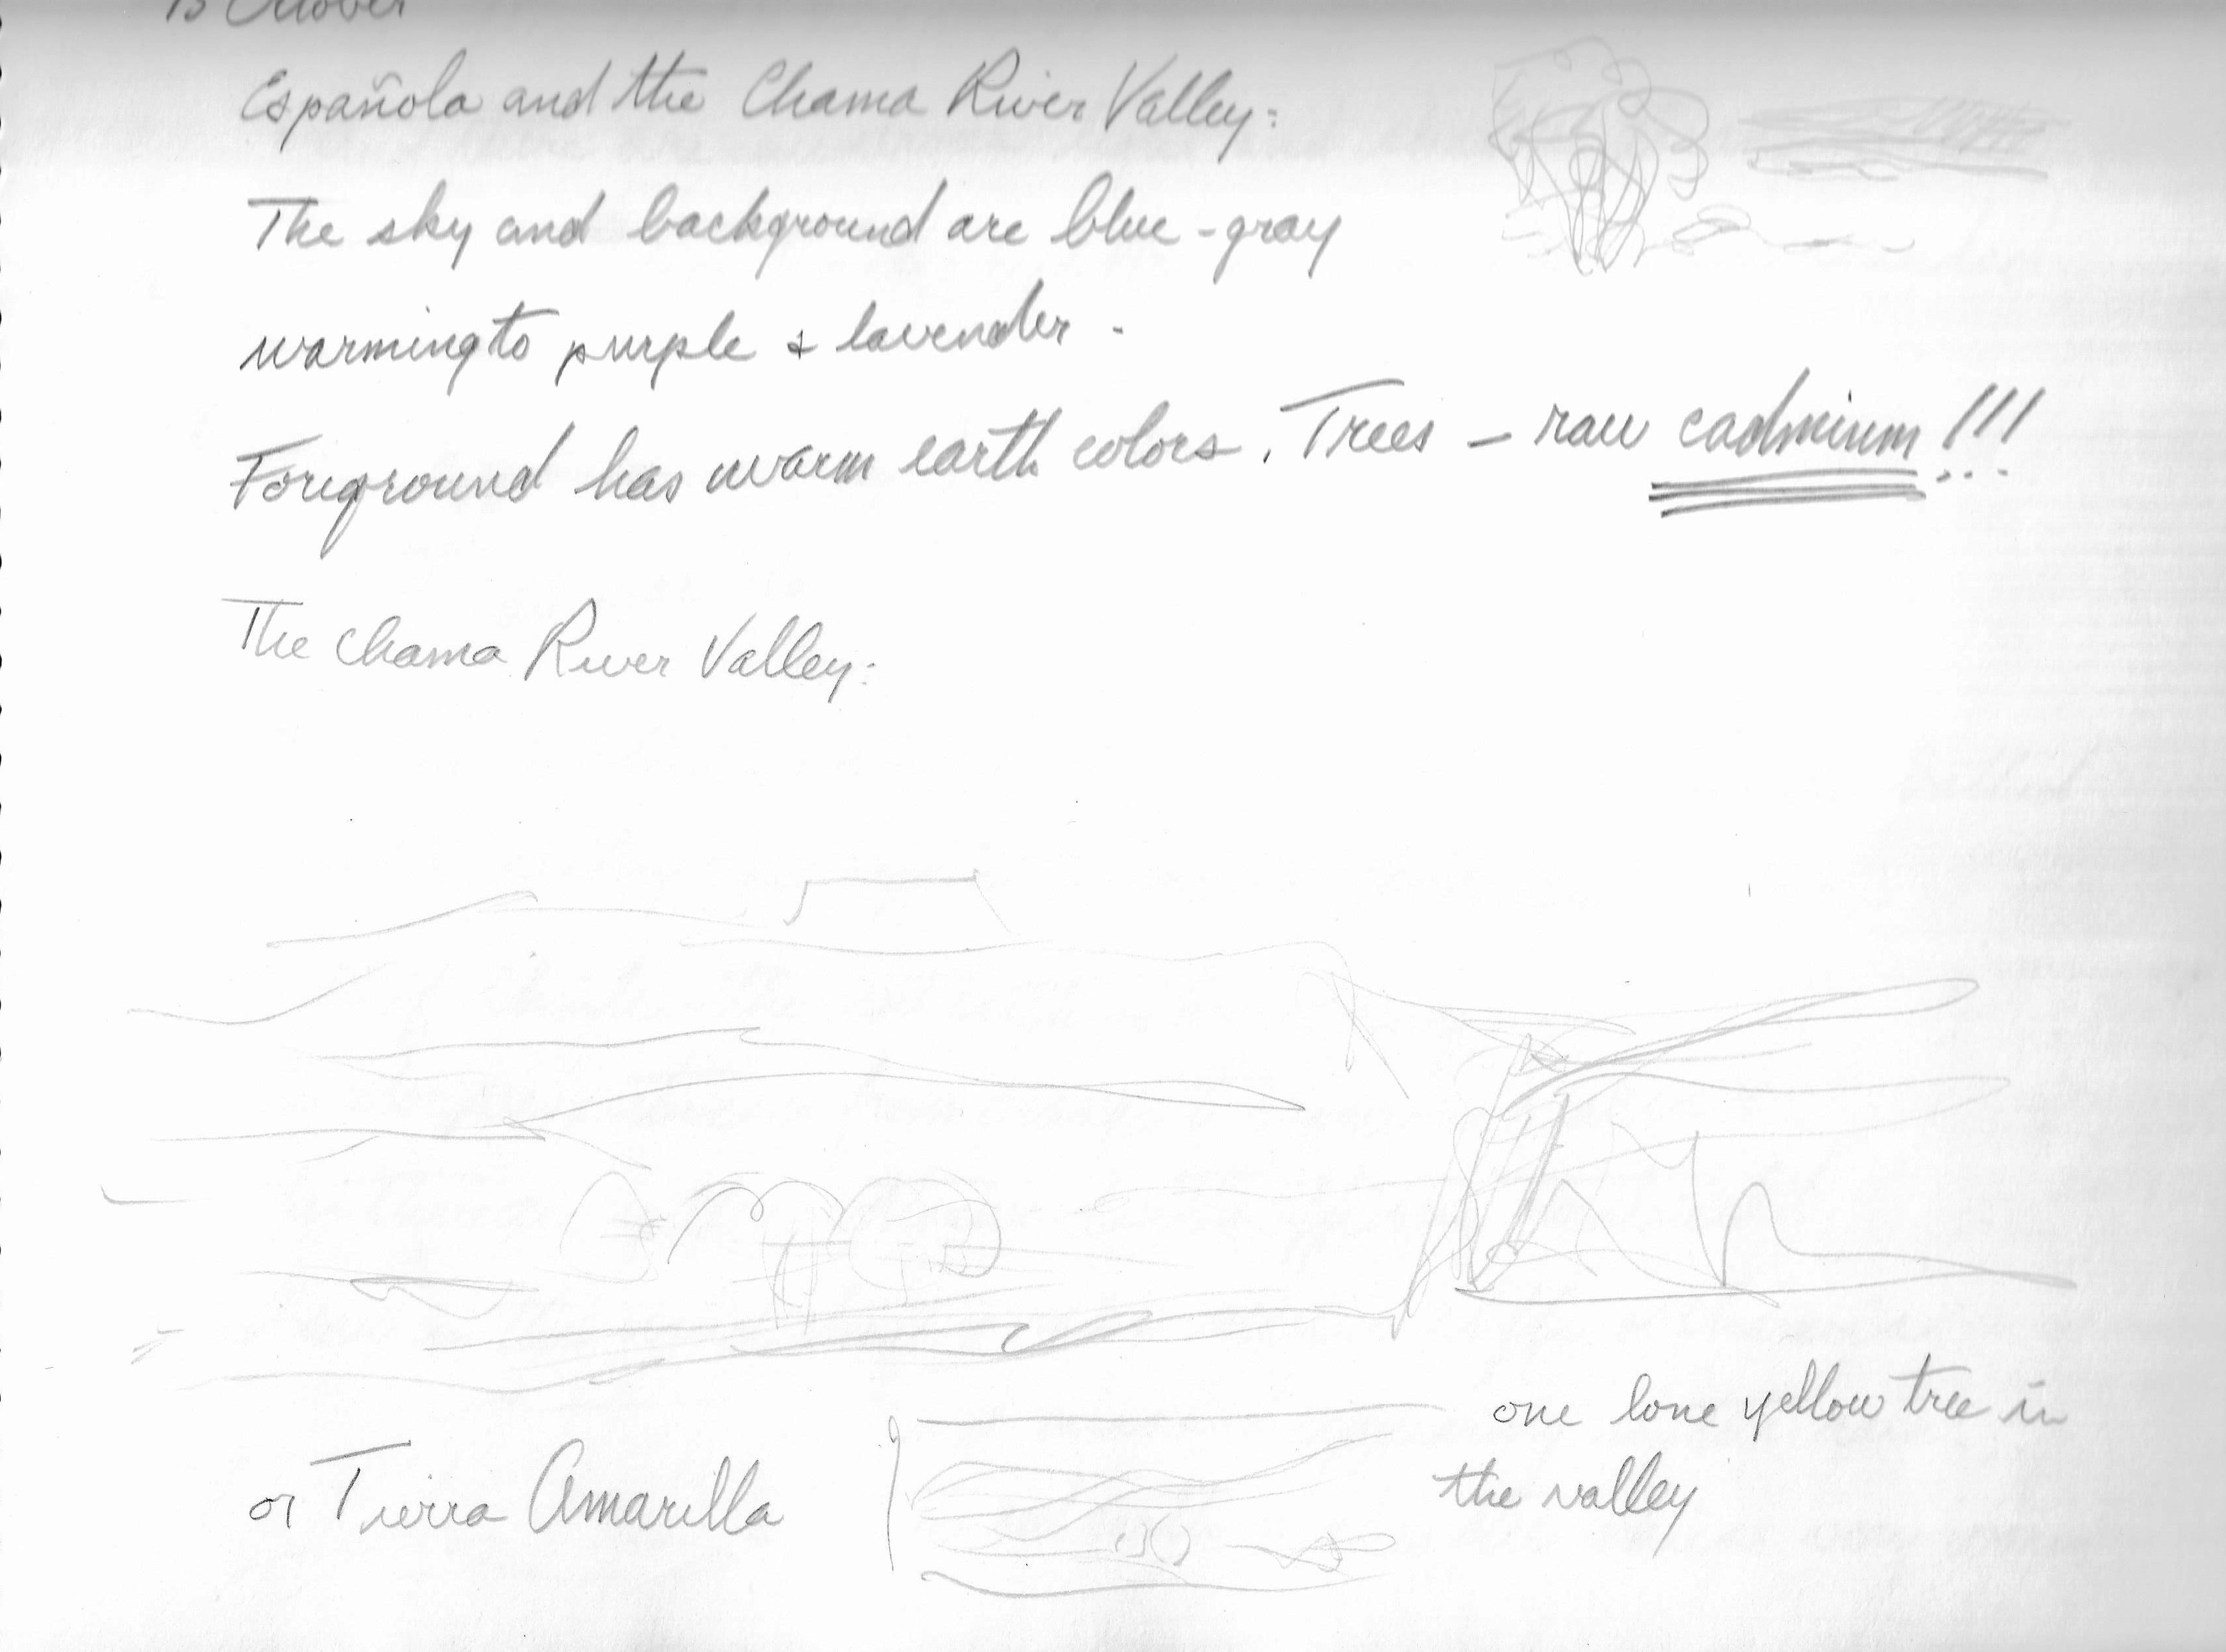 October
Española and the Chama River Valley:
The sky and background are blue-gray
warming to purple & lavender.
Foreground has warm earth colors. Trees – raw cadmium!!!
The Chama River Valley:
one lone yellow tree in
the valley
or Tierra Amarilla